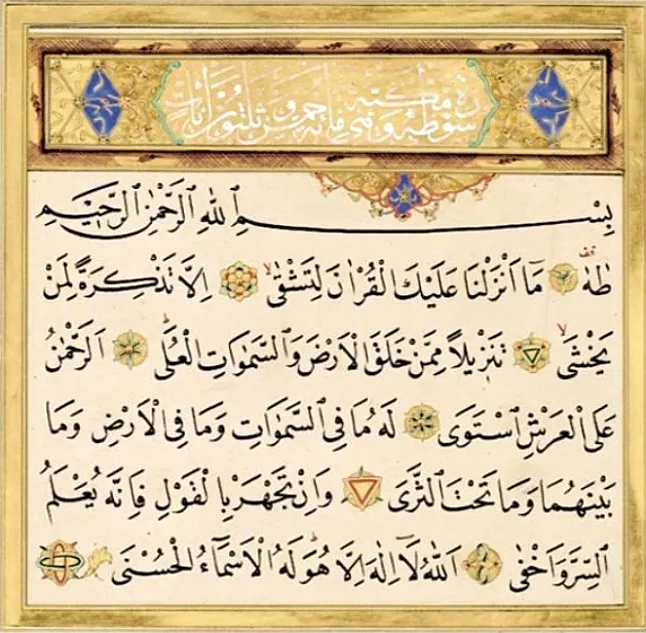 سورة طه مكية وهي مائة وخمس وثلثون آيات
بِسْمِ ٱللهِ ٱلرَّحْمٰنِ ٱلرَّحِيْمِ
طٰهٰ قف مَٓا اَنْزَلْنَا عَلَيْكَ الْقُرْاٰنَ لِتَشْقٰىۙ اِلَّا تَذْكِرَةً لِمَنْ
يَخْشٰىۙ تَنْزِيلًا مِمَّنْ خَلَقَ الْاَرْضَ وَالسَّمٰوَاتِ الْعُلٰىۜ اَلرَّحْمٰنُ
عَلَى الْعَرْشِ اسْتَوٰى لَهُ مَا فِى السَّمٰوَاتِ وَمَا فِى الْاَرْضِ وَمَا
بَيْنَهُمَا وَمَا تَحْتَ الثَّرٰى وَاِنْ تَجْهَرْ بِالْقَوْلِ فَاِنَّهُ يَعْلَمُ
السِّرَّ وَاَخْفٰى اَللهُ لَٓا اِلٰهَ اِلَّا هُوَۜ لَهُ الْاَسْمَٓاءُ الْحُسْنٰى